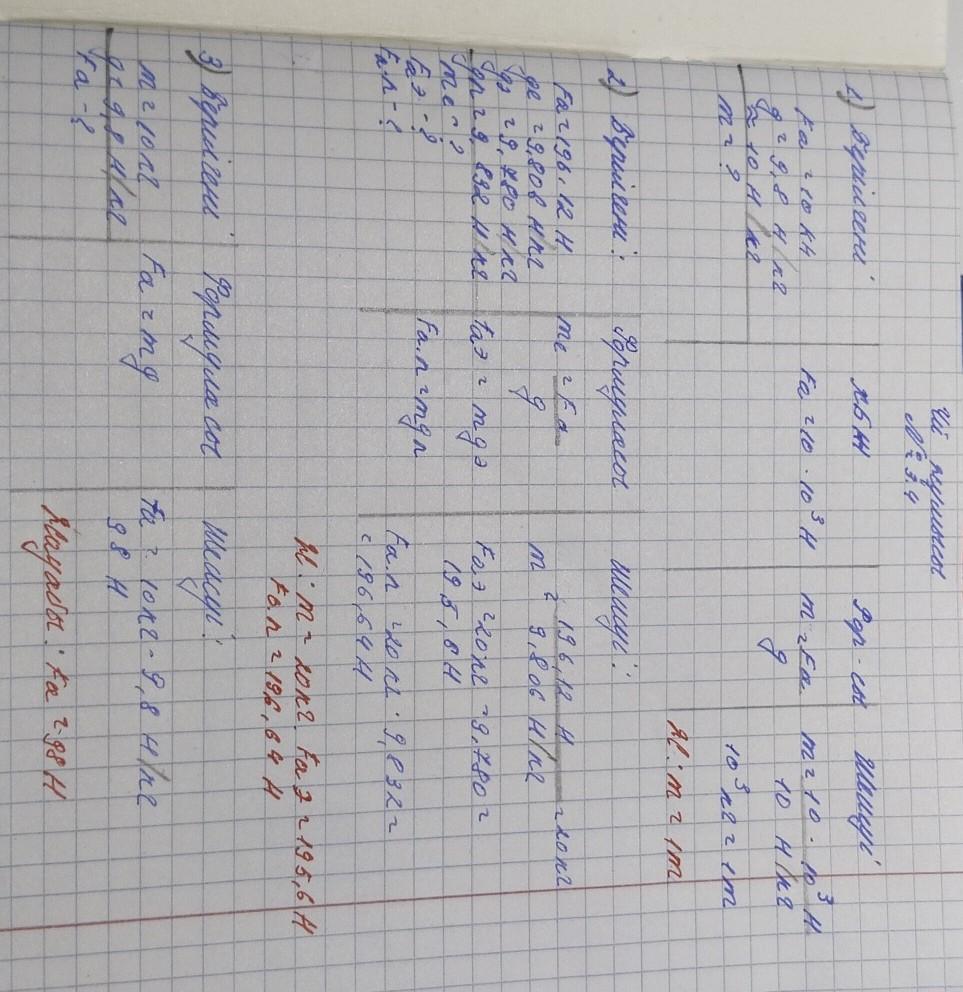 Үй жұмысы
№ 3.4
1) Берілгені
Fа = 10 кН
g = 9,8 Н/кг
≈ 10 Н/кг
m = ?
ХБЖ
Fа = 10 · 10³ Н
Фор-сы
m = Fа
g
Шешуі
m = 10 · 10³ Н
10 Н/кг
10³ кг = 1т
Ж: m = 1т
2) Берілгені:
Fа = 196,12 Н
gе = 9,806 Н/кг
gэ = 9,780 Н/кг
gп = 9,832 Н/кг
mе = ?
Fаэ - ?
Fа.п - ?
Формуласы
mе = Fа
g
Fаэ = mgэ
Fа.п = mgп
Шешуі:
m = 196,12 Н = 20кг
9,806 Н/кг
Fаэ = 20кг · 9,780 =
195,6Н
Fа.п = 20кг · 9,832 =
= 196,64Н
Ж: m = 20кг Fаэ = 195,6 Н
Fа.п = 196,64 Н
3) Берілгені
m = 10кг
g = 9,8 Н/кг
Fа - ?
Формуласы
Fа = mg
Шешуі:
Fа = 10кг · 9,8 Н/кг
98 Н
Жауабы: Fа = 98Н